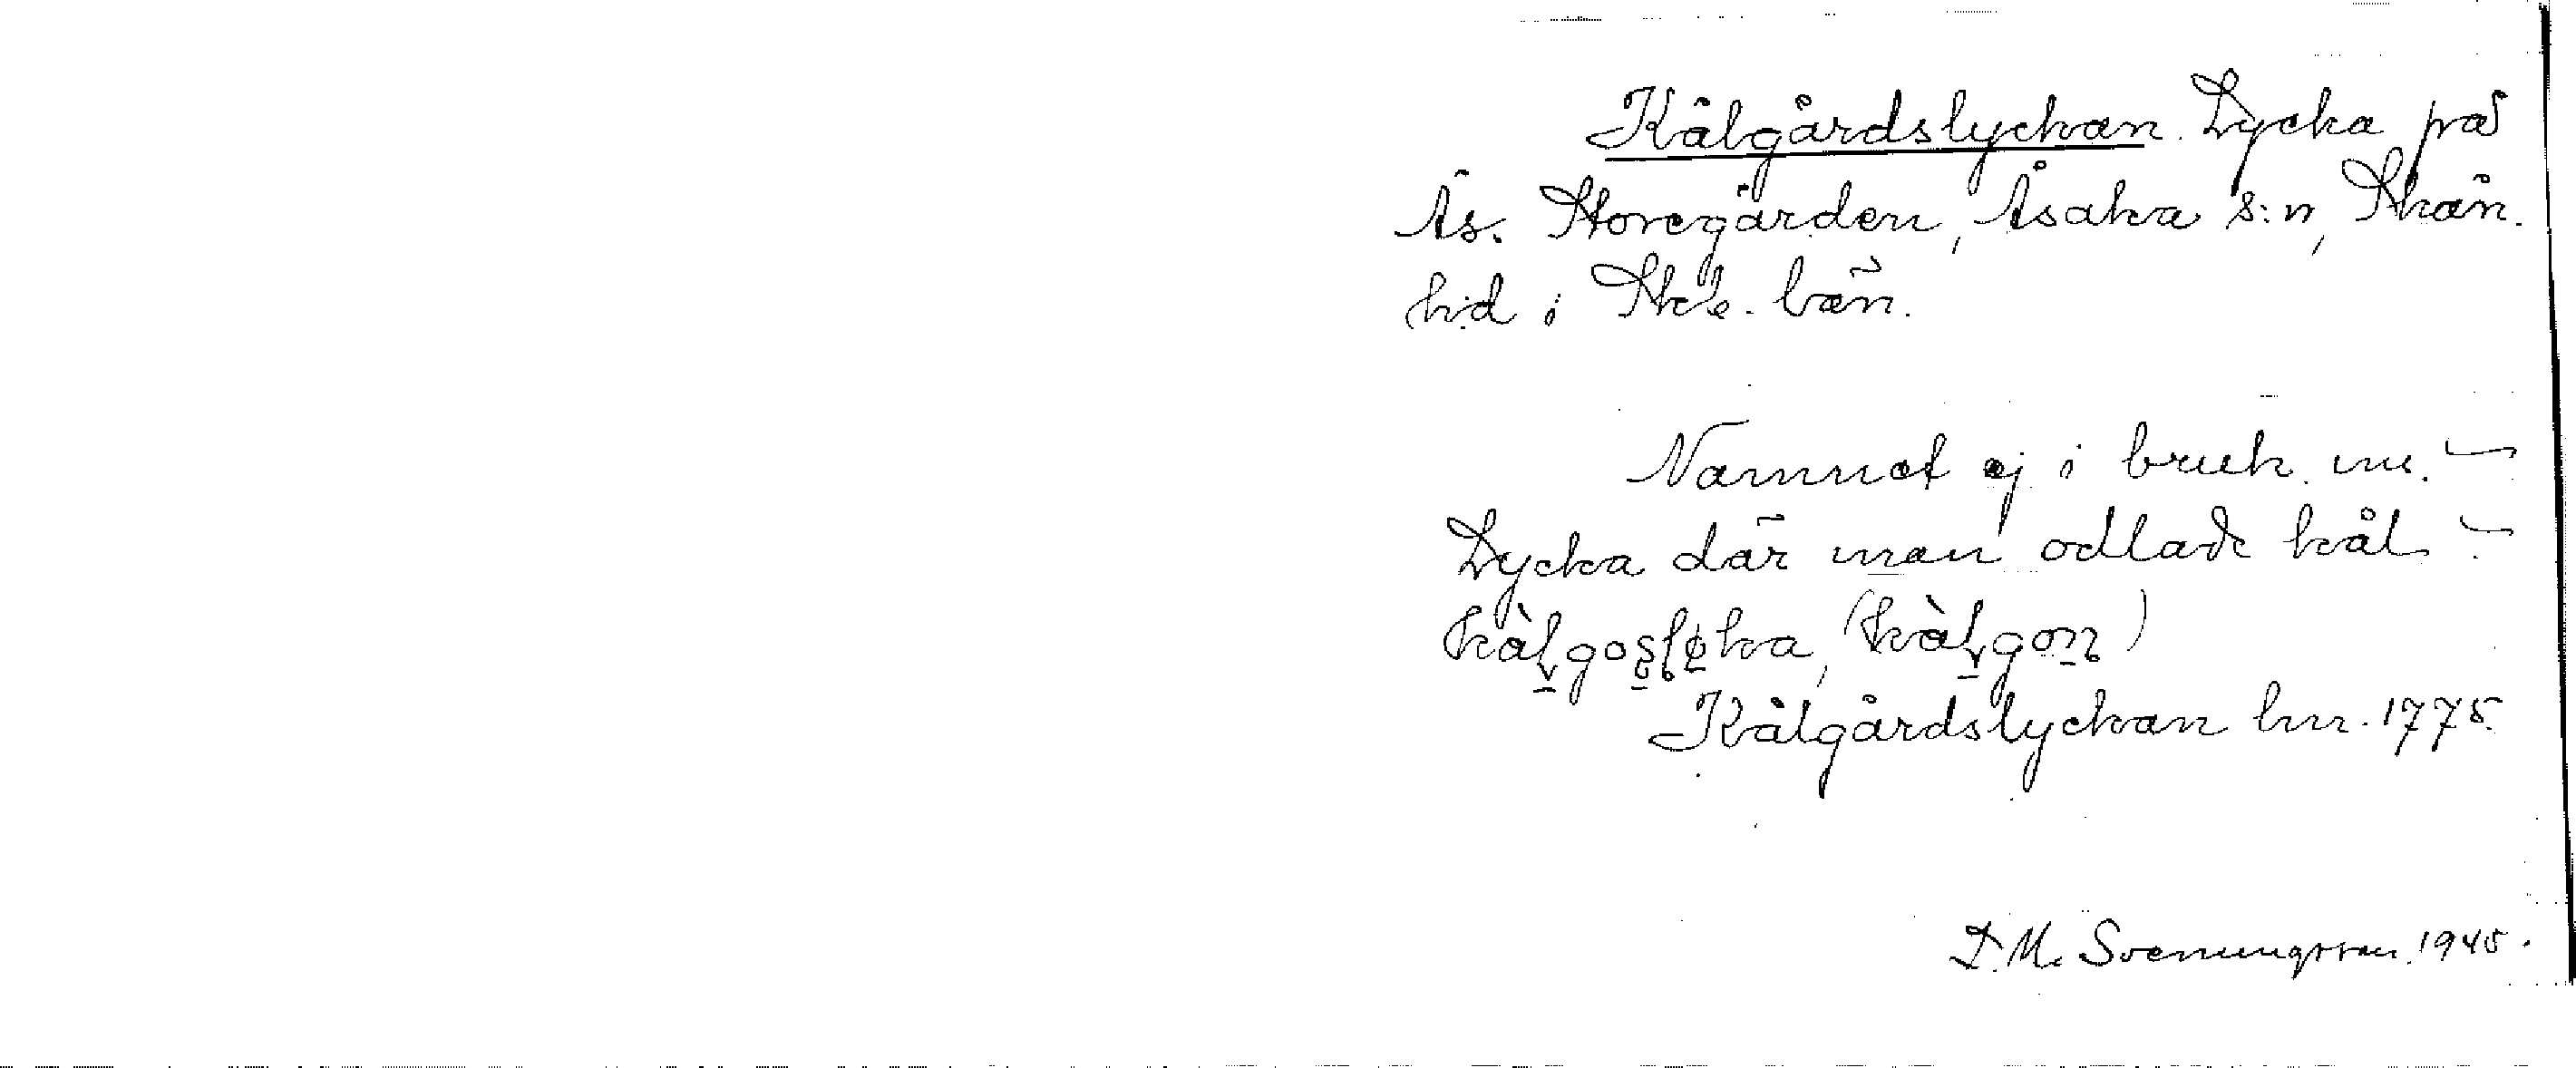 Kålgårdslyckan. Lycka på
Ås. Storegården, Åsaka s:n, Skån.
hd i Sk. län.
Namnet ej i bruk nu. –
Lycka där man odlade kål –
Kålgårdslyckan hm. 1775.
D. M. Svenungsson. 1945.